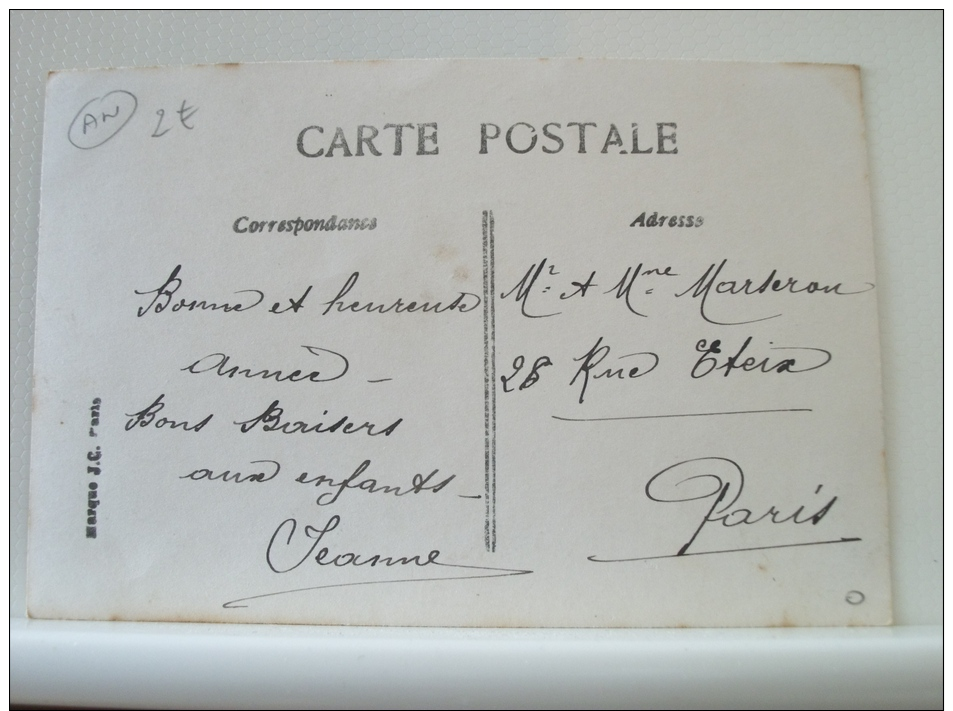 AN 2€
CARTE POSTALE
Correspondance
Adresse
Bonne et heureuse
année -
Bons Baisers
aux enfants -
Jeanne
Mr et Mme Marseron
28 Rue Eteix
Paris
Marque J.C. Paris